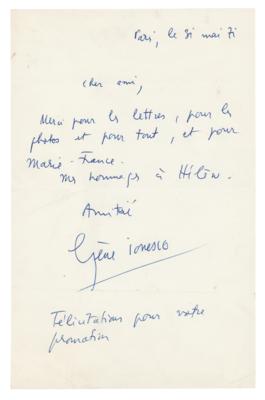 Paris, le 31 mai 71
cher ami,
Merci pour les lettres, pour les
photos et pour tout, et pour
Marie-France.
Mes hommages à Hélèn.
Amitié
Eugène Ionesco
Félicitations pour votre
promotion